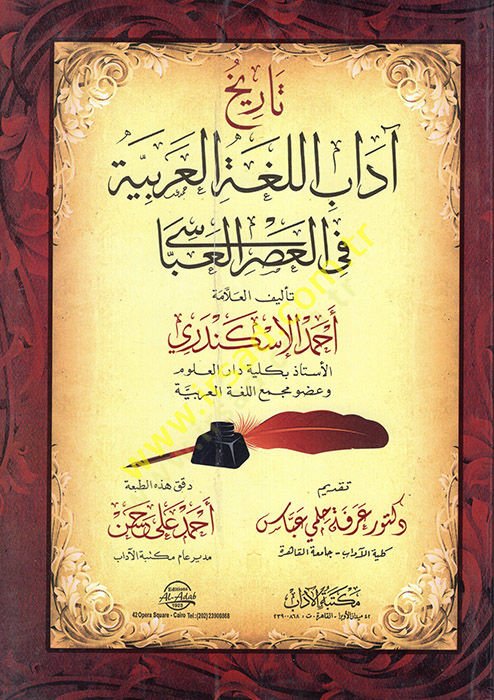 تاريخ
آداب اللغة العربية
في العصر العباسي
تأليف العلامة
أحمد الإسكندري
الأستاذ بكلية دار العلوم
وعضو مجمع اللغة العربية
تقديم
دكتور عرفة حلمي عباس
كلية الآداب - جامعة القاهرة
دقق هذه الطبعة
أحمد علي حسن
مدير عام مكتبة الآداب
مكتبة الآداب
٤٢ ميدان الأوبرا - القاهرة - ت: ٢٣٩٠٠٨٦٨
Editions
Al-Adab
1923
42 Opera Square - Cairo Tel: (202) 23900868